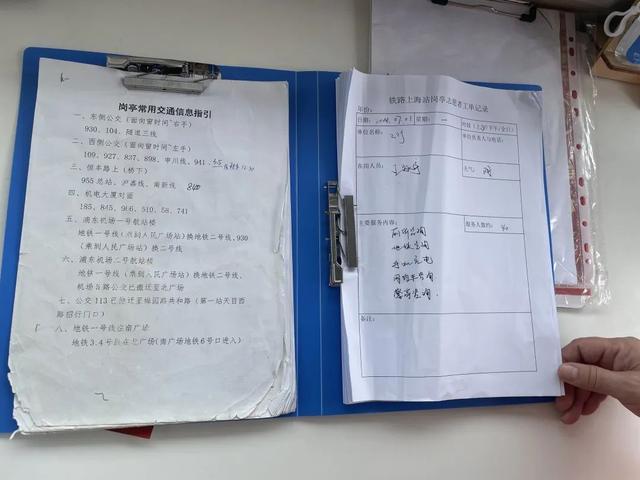 岗亭常用交通信息指引
一、东侧公交（面向窗时间~右手）
930、104、隧道三线
二、西侧公交（面向窗时间~左手）
109、927、837、898、申川线、941
三、恒丰路上（桥下）
955 总站、沪嘉线、南新线
四、机电大厦对面
185、845、966、510、58、741
五、浦东机场一号航站楼
地铁一号线（乘到人民广场站）换地铁二号线、930
（乘到人民广场站）换二号线
六、浦东机场二号航站楼
地铁一号线（乘到人民广场站）换地铁二号线、
机场五路公交已搬迁至北广场
七、公交 113 已搬迁至梅园路共和路（第一站天目西
路招行门口）
八、地铁一号线在南广场
地铁 3.4 号线在北广场（南广场地铁 6 号口进入）
铁路上海站岗亭志愿者工单记录
年份：
日期： 07.01 星期：一
单位名称：
单位负责人与电话：
在岗人员： 天气：
主要服务内容： 服务人数约：40
厕所咨询
地铁咨询
手机充电
备注：